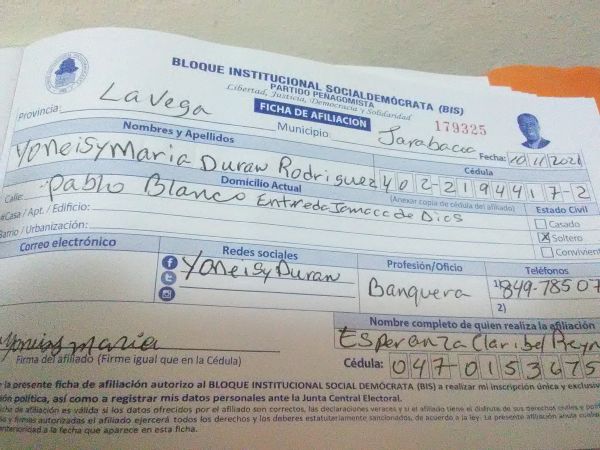 BLOQUE INSTITUCIONAL SOCIALDEMÓCRATA (BIS)
PARTIDO PEÑAGOMISTA
Libertad, Justicia, Democracia y Solidaridad
FICHA DE AFILIACIÓN
179325
Provincia: La Vega Municipio: Jarabacoa Fecha: 10/11/2021
Nombres y Apellidos Cédula
Yoneisy Maria Duran Rodriguez 402-219441 7-2
Domicilio Actual (Anexar copia de cédula del afiliado) Estado Civil
Calle: Pablo Blanco Entrada
#Casa / Apt. / Edificio: Casado
Barrio / Urbanización: X Soltero
Convivient
Correo electrónico Redes sociales Profesión/Oficio Teléfonos
Yoneisy Duran Banquera 1) 849-785 07
2)
Nombre completo de quien realiza la afiliación
Maria Esperanza Claribel Reyn
Firma del afiliado (Firme igual que en la Cédula) Cédula: 047 0153675
la presente ficha de afiliación autorizo al BLOQUE INSTITUCIONAL SOCIAL DEMÓCRATA (BIS) a realizar mi inscripción única y exclusiv
ión política, así como a registrar mis datos personales ante la Junta Central Electoral.
icha de afiliación es válida si los datos ofrecidos por el afiliado son correctos, las declaraciones veraces y si el afiliado tiene el disfrute de sus derechos civiles y polít
y firmas autorizadas el afiliado ejercerá todos los derechos y los deberes estatutariamente sancionados, de acuerdo a la ley. La presente afiliación anula cualqu
anterioridad a la fecha que aparece en esta ficha.